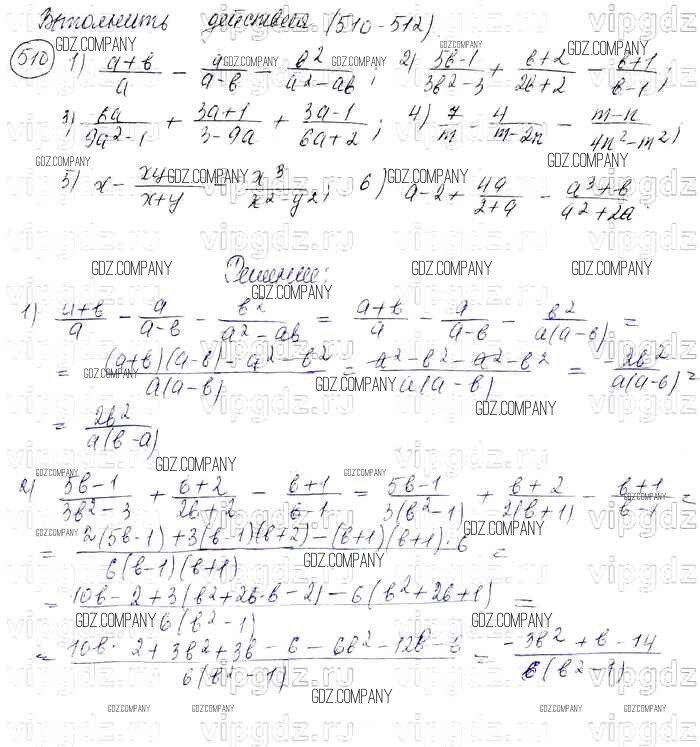 Выполнить действия (510-512).
510 1) (a+b)/a - a/(a-b) - b²/(a²-ab); 2) (5b-1)/(3b²-3) + (b+2)/(2b+2) - (b+1)/(b-1);
3) 6a/(9a²-1) + (3a+1)/(3-9a) + (3a-1)/(6a+2); 4) 7/m - 4/(m-2n) - (m-n)/(4n²-m²);
5) x - xy/(x+y) - x³/(x²-y²); 6) a-2 + 4a/(2+a) - (a³+b)/(a²+2a).
Решение:
1) (a+b)/a - a/(a-b) - b²/(a²-ab) = (a+b)/a - a/(a-b) - b²/(a(a-b)) =
= ((a+b)(a-b) - a² - b²)/(a(a-b)) = (a²-b²-a²-b²)/(a(a-b)) = 2b²/(a(a-b)) =
= 2b²/(a(b-a))
2) (5b-1)/(3b²-3) + (b+2)/(2b+2) - (b+1)/(b-1) = (5b-1)/(3(b²-1)) + (b+2)/(2(b+1)) - (b+1)/(b-1) =
= (2(5b-1) + 3(b-1)(b+2) - (b+1)(b+1)·6)/(6(b-1)(b+1)) =
= (10b-2+3(b²+2b-b-2) - 6(b²+2b+1))/(6(b²-1)) =
= (10b-2+3b²+3b-6-6b²-12b-6)/(6(b²-1)) = (-3b²+b-14)/(6(b²-1))